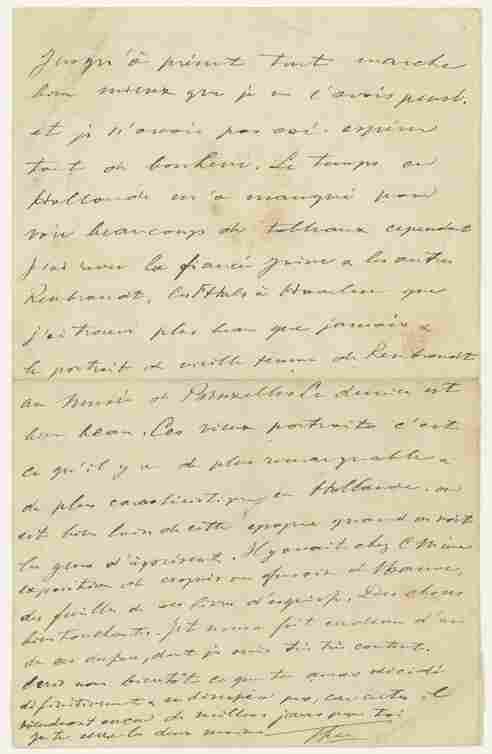 Jusqu'à présent tout marche
bien mieux que je ne l'avais pensé.
et je n'avais pas osé espérer
tant de bonheur. Le temps en
Hollande m'a manqué pour
voir beaucoup de tableaux cependant
j'ai revu la fiancée juive & les autres
Rembrandt, les Hals à Haarlem que
j'ai trouvé plus beau que jamais &
le portrait de vieille femme de Rembrandt
au Musée de Bruxelles. Ce dernier est
bien beau. Ces vieux portraits c'est
ce qu'il y a de plus remarquable &
de plus caractéristique en Hollande. on
est bien loin de cette époque quand on voit
les gens d'à présent. Il y avait chez C M une
exposition de croquis au fusain de Mauve,
des feuilles de ses livres d'esquisse. Des choses
bien touchantes. Il nous a fait cadeau d'un
de ces dessins, dont je suis très très content.
Ecris nous bientôt ce que tu auras décidé
définitivement & ne désespère pas, car certes il
viendront encore de meilleurs jours pour toi
Je te serre les deux mains Theo